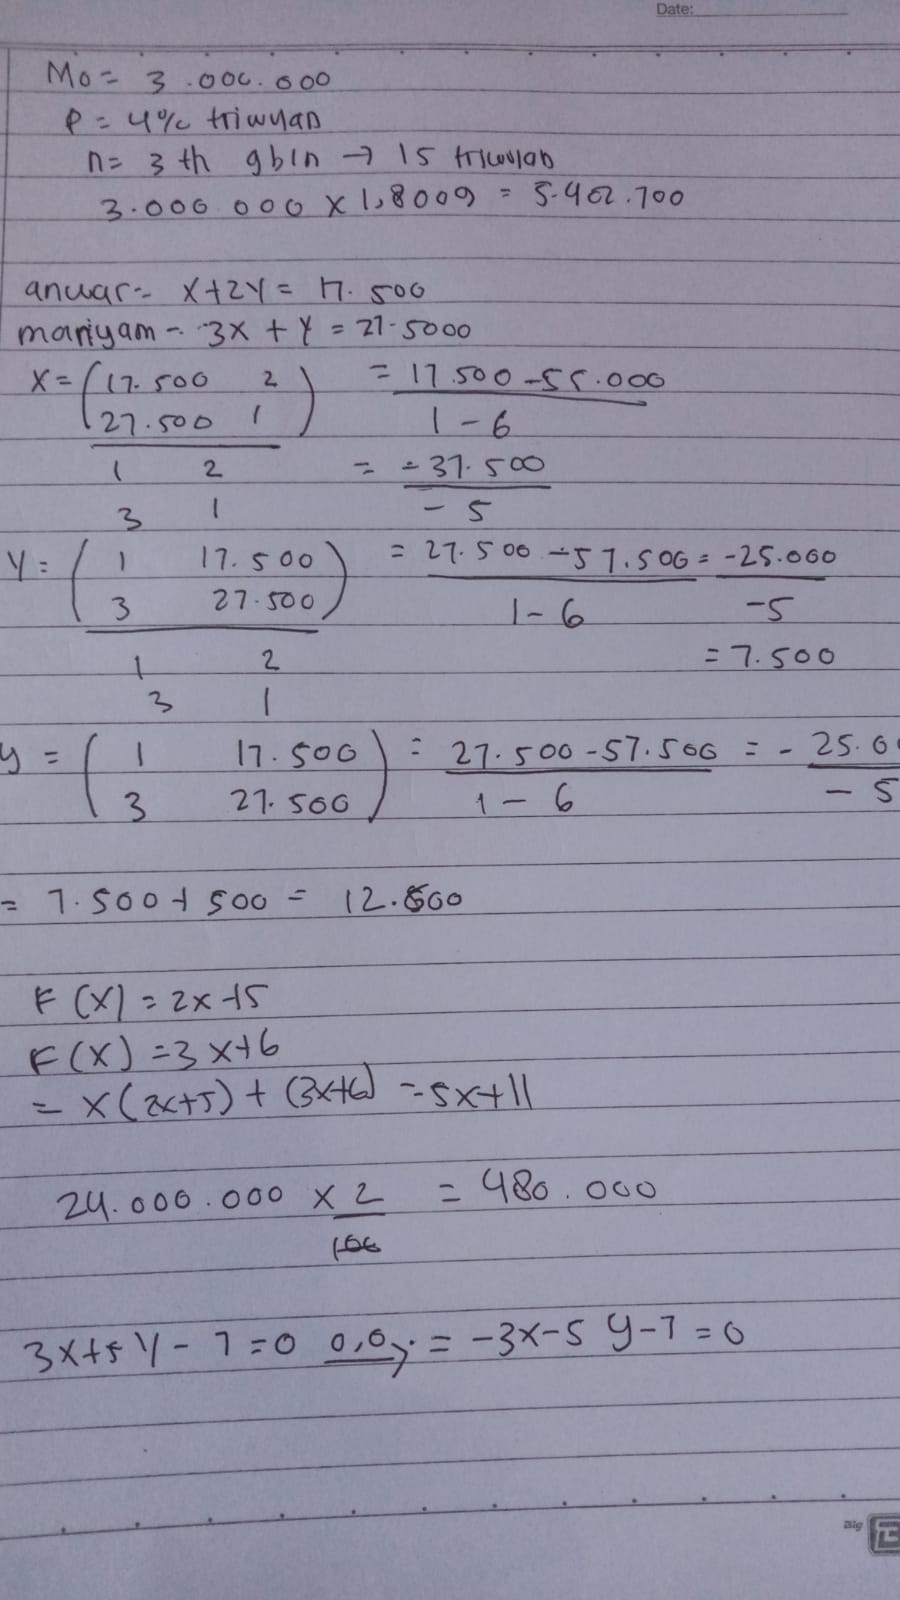 Date:
Mo = 3.000.000
P = 4% triwulan
n = 3 th 9bln → 15 triwulan
3.000.000 x 1,8009 = 5.402.700
anwar = x+2y = 17.500
mariyam - 3x + y = 27.5000
x = (17.500 2 = 17.500 - 55.000
27.500 1) 1 - 6
1 2 = -37.500
3 1 -5
y = (1 17.500 = 27.500 - 57.500 = -25.000
3 27.500) 1 - 6 -5
1 2 = 7.500
3 1
y = (1 17.500 = 27.500 - 57.500 = - 25.0
3 27.500) 1 - 6 - 5
= 7.500 + 500 = 12.500
F(x) = 2x+5
F(x) = 3x+6
= x(2x+5) + (3x+6) = 5x+11
24.000.000 x 2 = 480.000
100
3x+5y - 7=0 0,0 = -3x-5y-7=0
Big